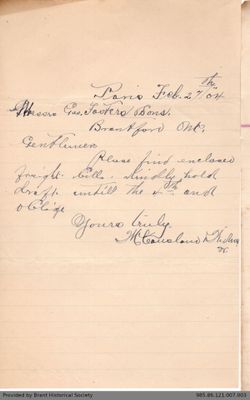 Paris Feb. 27th 04
Messrs Geo. Foster & Sons.
Brantford Ont.
Gentlemen
Please find enclosed
freight bills. Kindly hold
draft untill the 4th and
oblige
Yours truly.
McCausland
Provided by Brant Historical Society
985.86.121.007.003